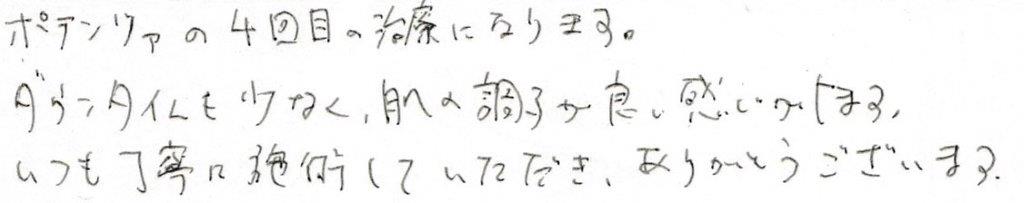 ポテンツァの4回目の治療になります。
ダウンタイムも少なく、肌の調子が良い感じがします。
いつも丁寧に施術していただき、ありがとうございます。